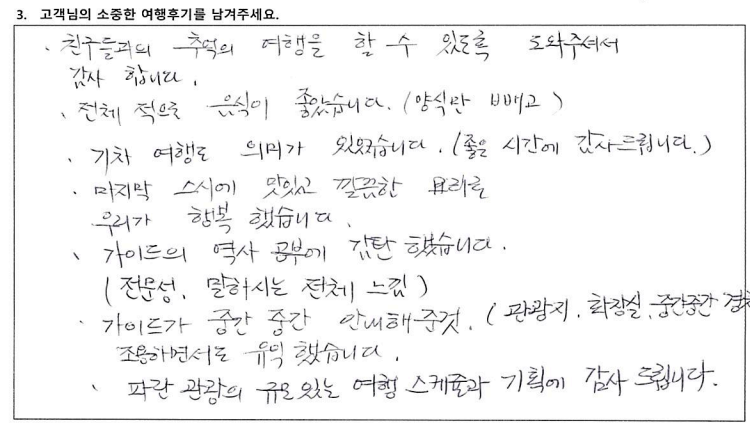 3. 고객님의 소중한 여행후기를 남겨주세요.
· 친구들과의 추억의 여행을 할 수 있도록 도와주셔서
감사 합니다.
· 전체 적으로 음식이 좋았습니다. (양식만 빼고)
· 기차 여행도 의미가 있었습니다. (좋은 시간에 감사드립니다.)
· 마지막 스시에 맛있고 깔끔한 요리로
우리가 행복 했습니다.
· 가이드의 역사 공부에 감탄 했습니다.
(전문성, 말하시는 전체 느낌)
· 가이드가 중간 중간 안내해준것. (관광지, 화장실, 중간중간
조용하면서도 유익 했습니다.
· 파란 관광의 규모있는 여행 스케쥴과 기획에 감사 드립니다.